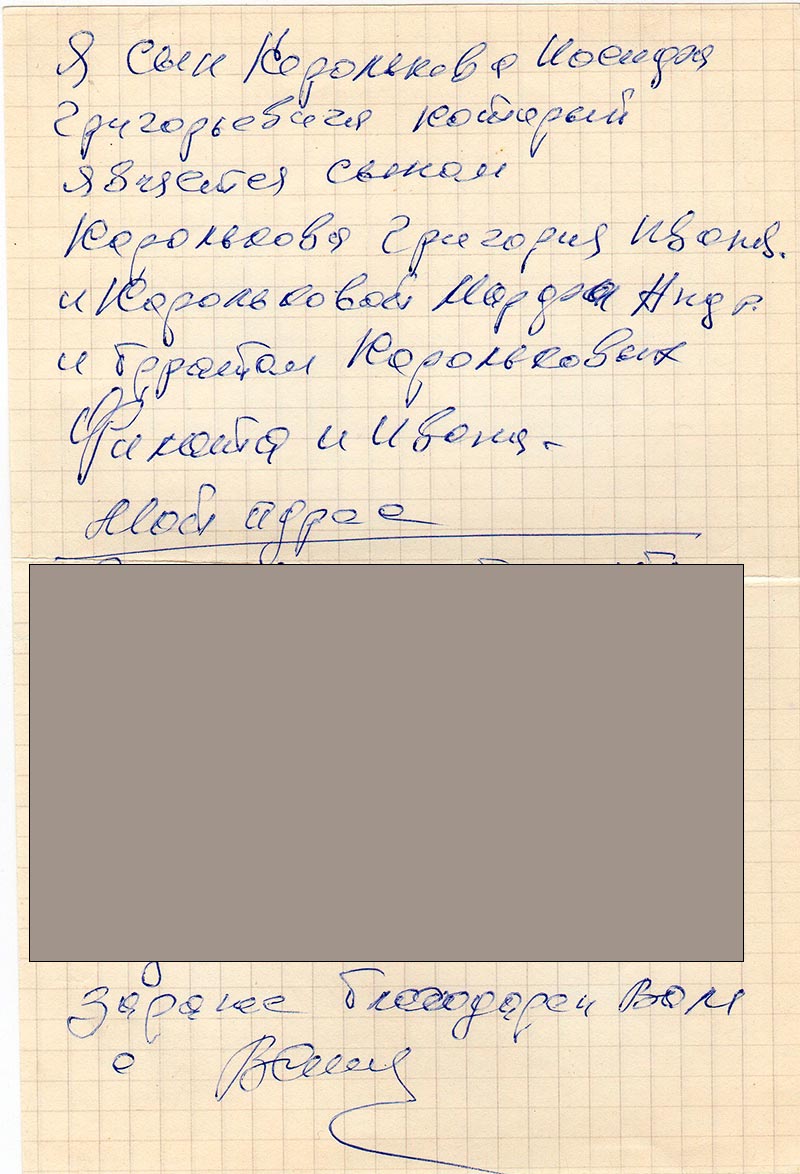 Я сын Королькова Иосифа
Григорьевича который
является сыном
Королькова Григория Ивана.
и Корольковой Марфы Андр.
и братом Корольковых
Филата и Ивана.
Мой адрес
Заранее благодарен Вам
с